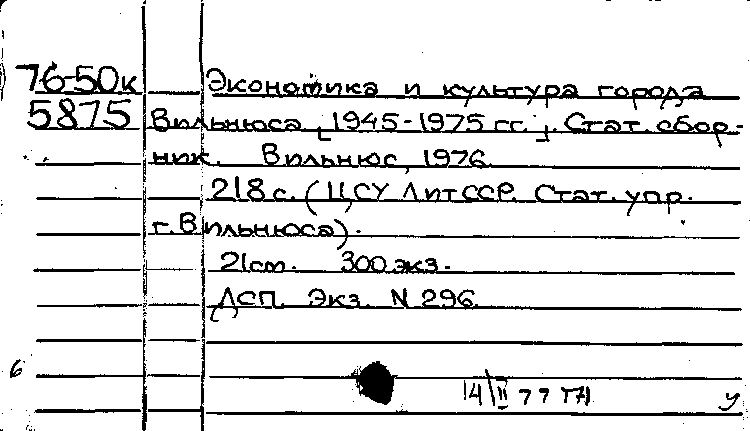 76-50к Экономика и культура города
5875 Вильнюса [1945-1975 гг.]. Стат. сбор-
ник. Вильнюс, 1976.
218 с. (ЦСУ ЛитССР. Стат. упр.
г. Вильнюса).
21 см. 300 экз.
ДСП. Экз. N 296.
6
14/II 77 у